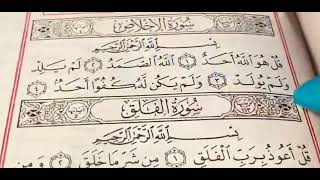 سُورَةُ الإِخْلَاصِ
بِسْمِ اللَّهِ الرَّحْمَٰنِ الرَّحِيمِ
قُلْ هُوَ اللَّهُ أَحَدٌ ١ اللَّهُ الصَّمَدُ ٢ لَمْ يَلِدْ
وَلَمْ يُولَدْ ٣ وَلَمْ يَكُن لَّهُ كُفُوًا أَحَدٌ ٤
سُورَةُ الْفَلَقِ
بِسْمِ اللَّهِ الرَّحْمَٰنِ الرَّحِيمِ
قُلْ أَعُوذُ بِرَبِّ الْفَلَقِ ١ مِن شَرِّ مَا خَلَقَ ٢ وَمِن